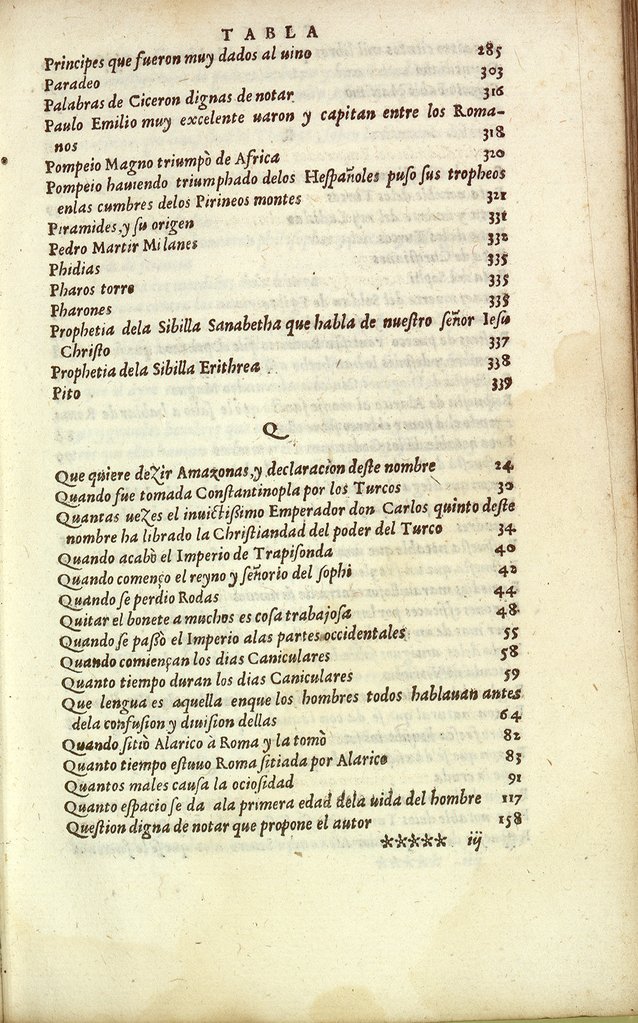 TABLA
Principes que fueron muy dados al uino 285
Paradeo 303
Palabras de Ciceron dignas de notar 316
Paulo Emilio muy excelente uaron y capitan entre los Roma-
nos 318
Pompeio Magno triumpò de Africa 320
Pompeio hauiendo triumphado delos Heſpañoles puſo ſus tropheos
enlas cumbres delos Pirineos montes 321
Piramides, y ſu origen 331
Pedro Martir Milanes 332
Phidias 335
Pharos torre 335
Pharones 335
Prophetia dela Sibilla Sanabetha que habla de nueſtro ſeñor Ieſu
Chriſto 337
Prophetia dela Sibilla Erithrea 338
Pito 339
Q
Que quiere deZir Amazonas, y declaracion deſte nombre 24
Quando fue tomada Conſtantinopla por los Turcos 30
Quantas ueZes el inuictiſsimo Emperador don Carlos quinto deſte
nombre ha librado la Chriſtiandad del poder del Turco 34
Quando acabò el Imperio de Trapiſonda 40
Quando començo el reyno y ſeñorio del ſophi 42
Quando ſe perdio Rodas 44
Quitar el bonete a muchos es coſa trabajoſa 48
Quando ſe paſsò el Imperio alas partes occidentales 55
Quando comiençan los dias Caniculares 58
Quanto tiempo duran los dias Caniculares 59
Que lengua es aquella enque los hombres todos hablauan antes
dela confuſion y diuiſion dellas 64
Quando ſitiò Alarico à Roma y la tomò 82
Quanto tiempo eſtuuo Roma ſitiada por Alarico 83
Quantos males cauſa la ocioſidad 91
Quanto eſpacio ſe da ala primera edad dela uida del hombre 117
Queſtion digna de notar que propone el autor 158
***** iij